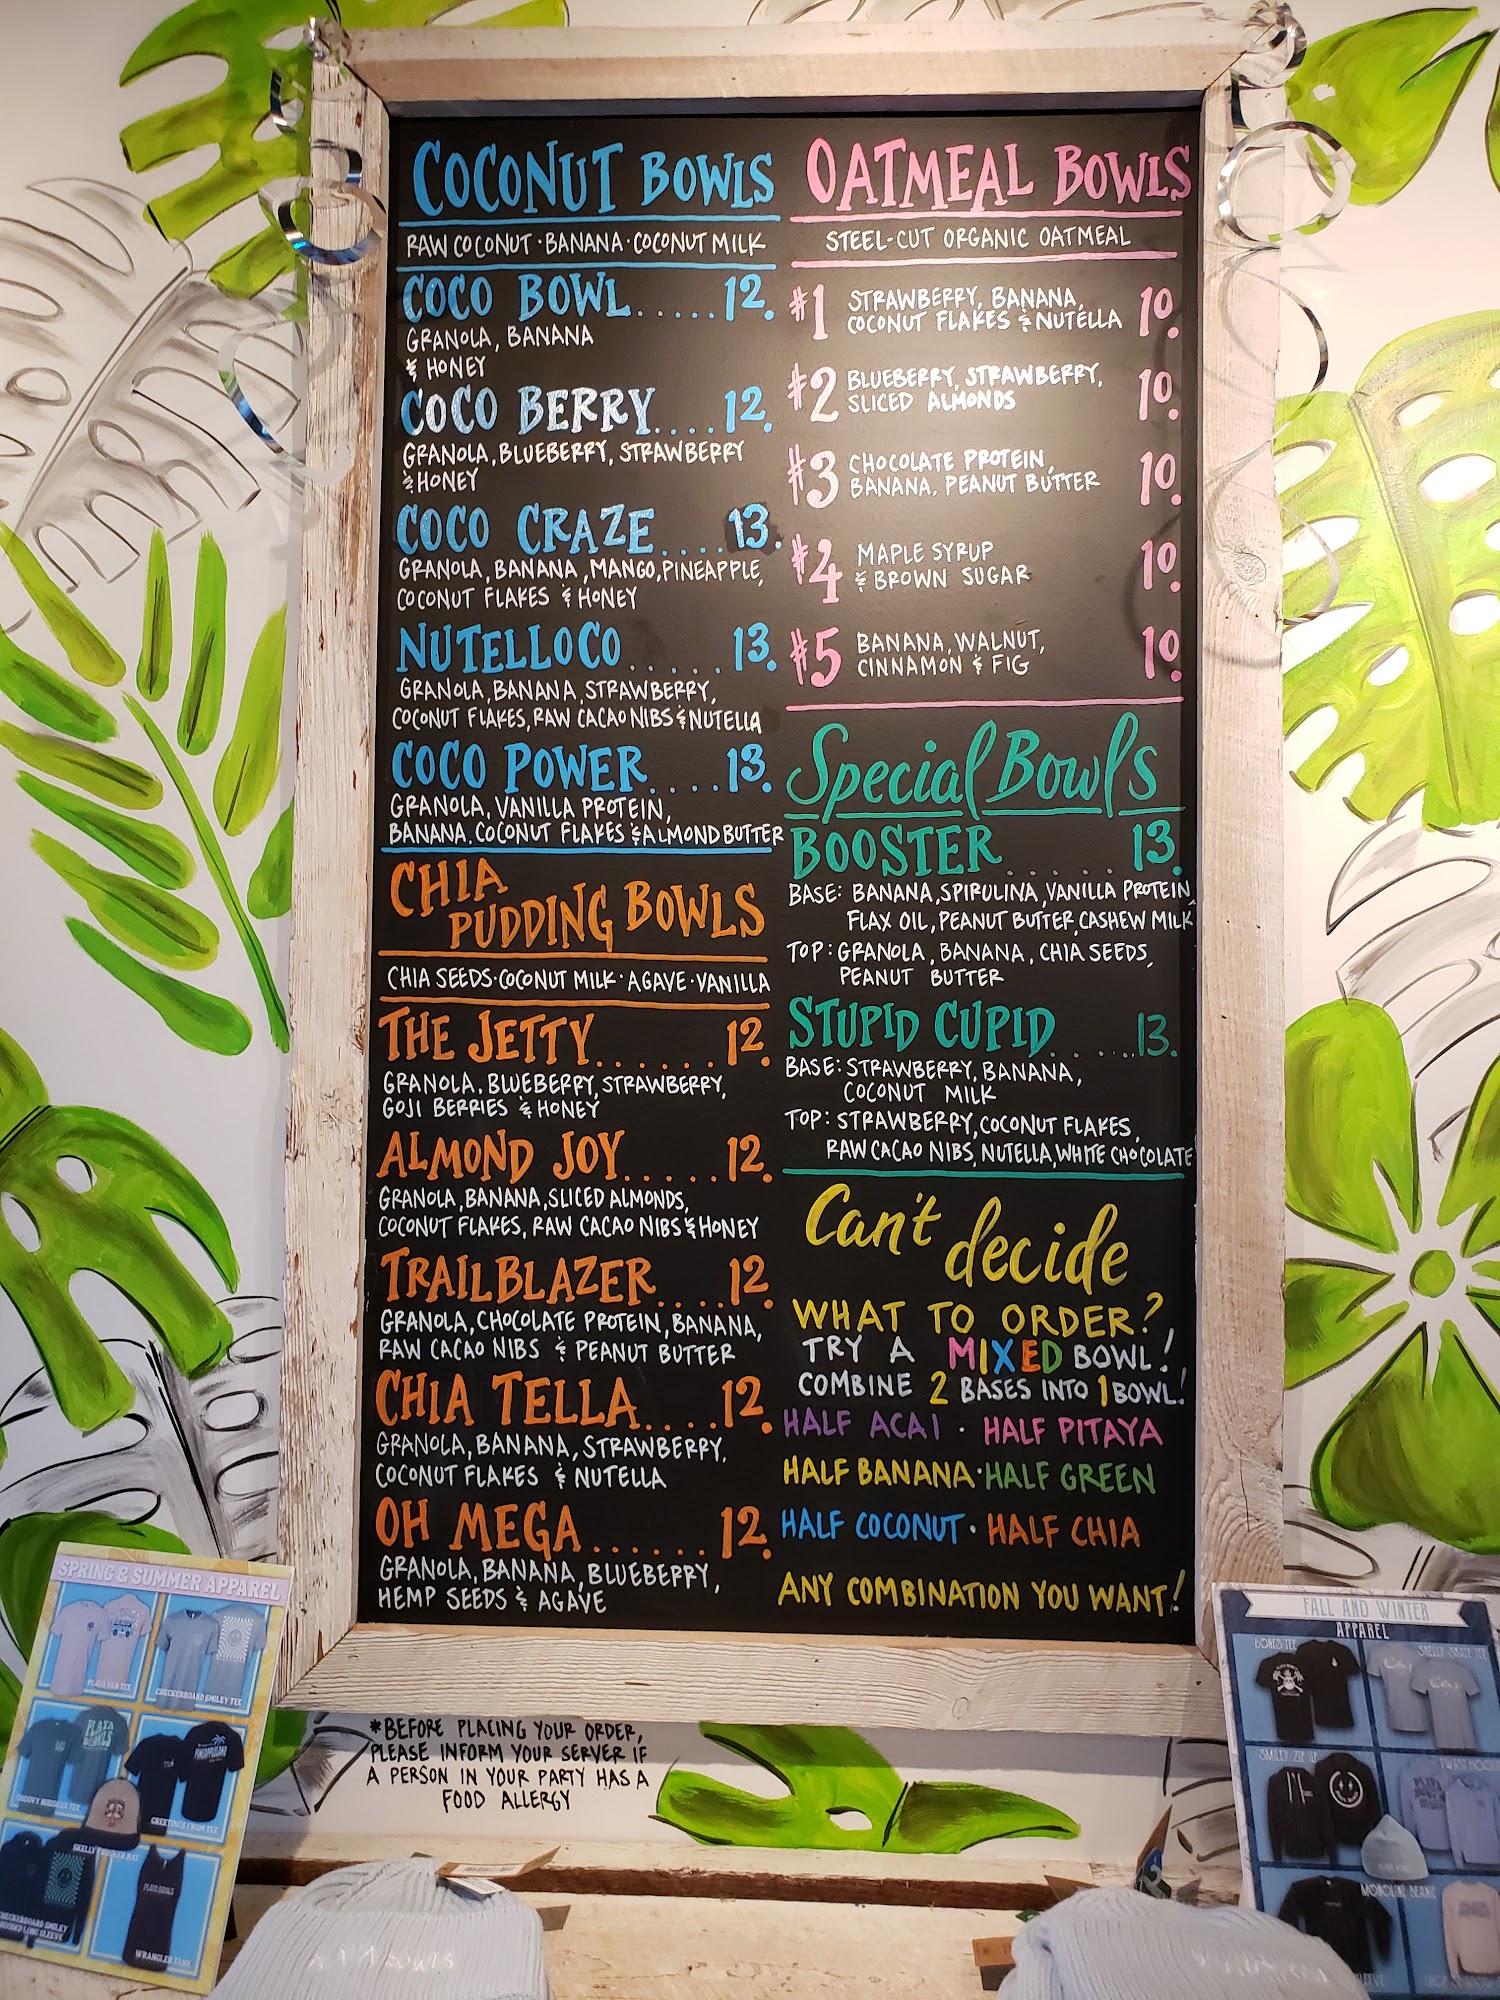 COCONUT BOWLS
RAW COCONUT · BANANA · COCONUT MILK
COCO BOWL.....12.
GRANOLA, BANANA
& HONEY
COCO BERRY....12.
GRANOLA, BLUEBERRY, STRAWBERRY
& HONEY
COCO CRAZE....13.
GRANOLA, BANANA, MANGO, PINEAPPLE,
COCONUT FLAKES & HONEY
NUTELLOCO......13.
GRANOLA, BANANA, STRAWBERRY,
COCONUT FLAKES, RAW CACAO NIBS & NUTELLA
COCO POWER....13.
GRANOLA, VANILLA PROTEIN,
BANANA, COCONUT FLAKES & ALMOND BUTTER
CHIA
PUDDING BOWLS
CHIA SEEDS · COCONUT MILK · AGAVE · VANILLA
THE JETTY......12.
GRANOLA, BLUEBERRY, STRAWBERRY,
GOJI BERRIES & HONEY
ALMOND JOY.....12.
GRANOLA, BANANA, SLICED ALMONDS,
COCONUT FLAKES, RAW CACAO NIBS & HONEY
TRAILBLAZER....12.
GRANOLA, CHOCOLATE PROTEIN, BANANA,
RAW CACAO NIBS & PEANUT BUTTER
CHIA TELLA....12.
GRANOLA, BANANA, STRAWBERRY,
COCONUT FLAKES & NUTELLA
OH MEGA.......12.
GRANOLA, BANANA, BLUEBERRY,
HEMP SEEDS & AGAVE
OATMEAL BOWLS
STEEL-CUT ORGANIC OATMEAL
#1 STRAWBERRY, BANANA, 10.
COCONUT FLAKES & NUTELLA
#2 BLUEBERRY, STRAWBERRY, 10.
SLICED ALMONDS
#3 CHOCOLATE PROTEIN, 10.
BANANA, PEANUT BUTTER
#4 MAPLE SYRUP 10.
& BROWN SUGAR
#5 BANANA, WALNUT, 10.
CINNAMON & FIG
Special Bowls
BOOSTER......13.
BASE: BANANA, SPIRULINA, VANILLA PROTEIN,
FLAX OIL, PEANUT BUTTER, CASHEW MILK
TOP: GRANOLA, BANANA, CHIA SEEDS,
PEANUT BUTTER
STUPID CUPID.....13.
BASE: STRAWBERRY, BANANA,
COCONUT MILK
TOP: STRAWBERRY, COCONUT FLAKES,
RAW CACAO NIBS, NUTELLA, WHITE CHOCOLATE
Can't decide
WHAT TO ORDER?
TRY A MIXED BOWL!
COMBINE 2 BASES INTO 1 BOWL!
HALF ACAI · HALF PITAYA
HALF BANANA · HALF GREEN
HALF COCONUT · HALF CHIA
ANY COMBINATION YOU WANT!
*BEFORE PLACING YOUR ORDER,
PLEASE INFORM YOUR SERVER IF
A PERSON IN YOUR PARTY HAS A
FOOD ALLERGY
SPRING & SUMMER APPAREL
PLAYA VAN TEE
CHECKERBOARD SMILEY TEE
PLAYA
BOWLS
PINEAPPLELAND
GROOVY HIBISCUS TEE
GREETINGS FROM TEE
SKELLY TRUCKER HAT
PLAYA BOWLS
CHECKERBOARD SMILEY
HOODED LONG SLEEVE
WRANGLER TANK
FALL AND WINTER
APPAREL
BONES TEE
SKELLY SKATE TEE
SMILEY ZIP UP
MONOLINE BEANIE